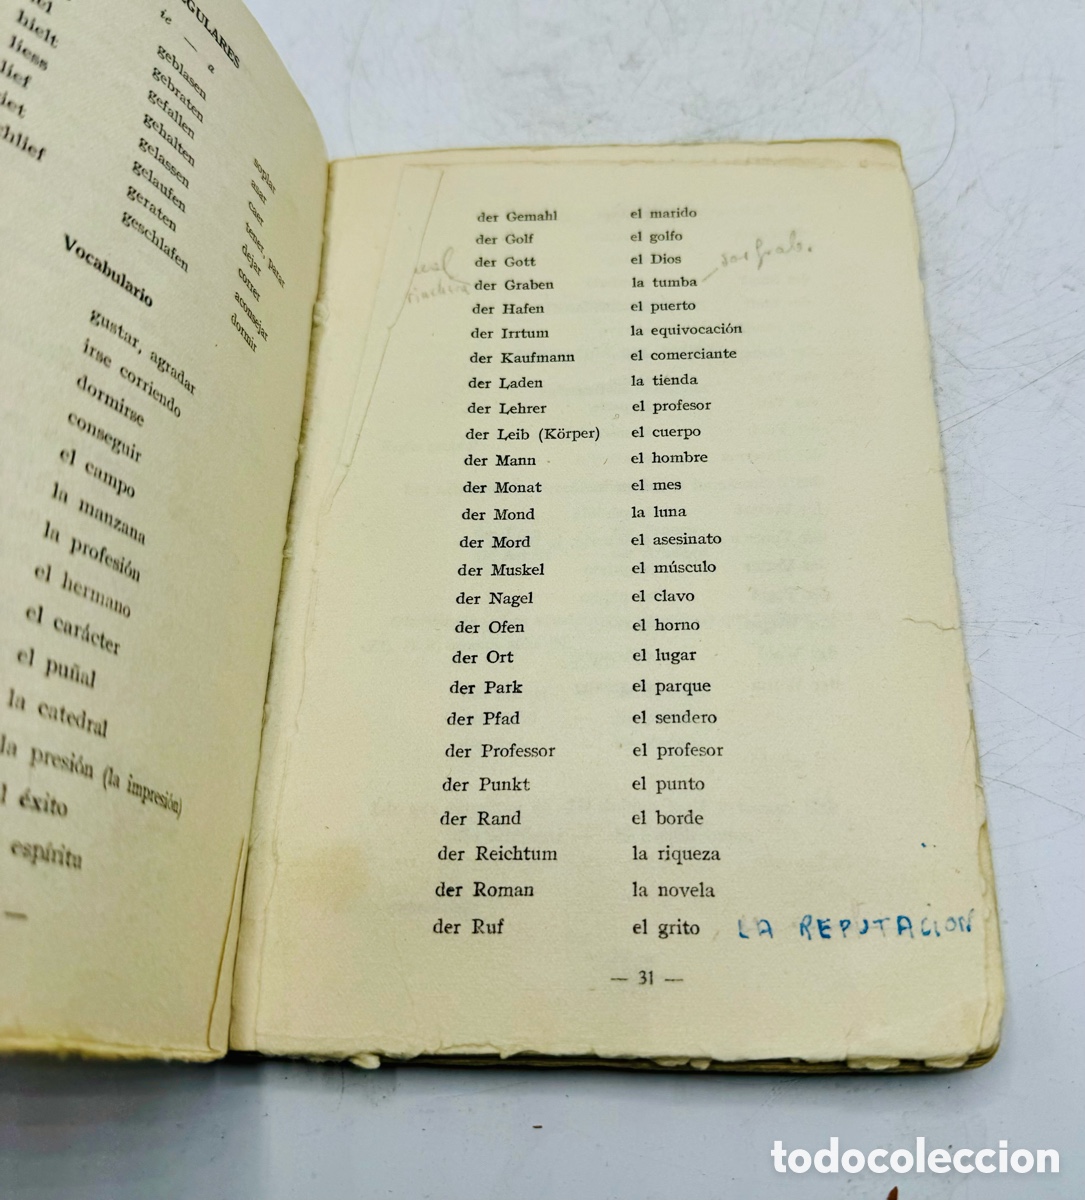 ie — a
hielt
liess
geblasen
gebraten
gefallen
gehalten
gelassen
gelaufen
geraten
geschlafen
soplar
asar
caer
tener, parar
dejar
correr
aconsejar
dormir
Vocabulario
gustar, agradar
irse corriendo
dormirse
conseguir
el campo
la manzana
la profesión
el hermano
el carácter
el puñal
la catedral
la presión (la impresión)
éxito
espíritu
der Gemahl el marido
der Golf el golfo
der Gott el Dios
der Graben la tumba
der Hafen el puerto
der Irrtum la equivocación
der Kaufmann el comerciante
der Laden la tienda
der Lehrer el profesor
der Leib (Körper) el cuerpo
der Mann el hombre
der Monat el mes
der Mond la luna
der Mord el asesinato
der Muskel el músculo
der Nagel el clavo
der Ofen el horno
der Ort el lugar
der Park el parque
der Pfad el sendero
der Professor el profesor
der Punkt el punto
der Rand el borde
der Reichtum la riqueza
der Roman la novela
der Ruf el grito LA REPUTACION
— 31 —
todocoleccion